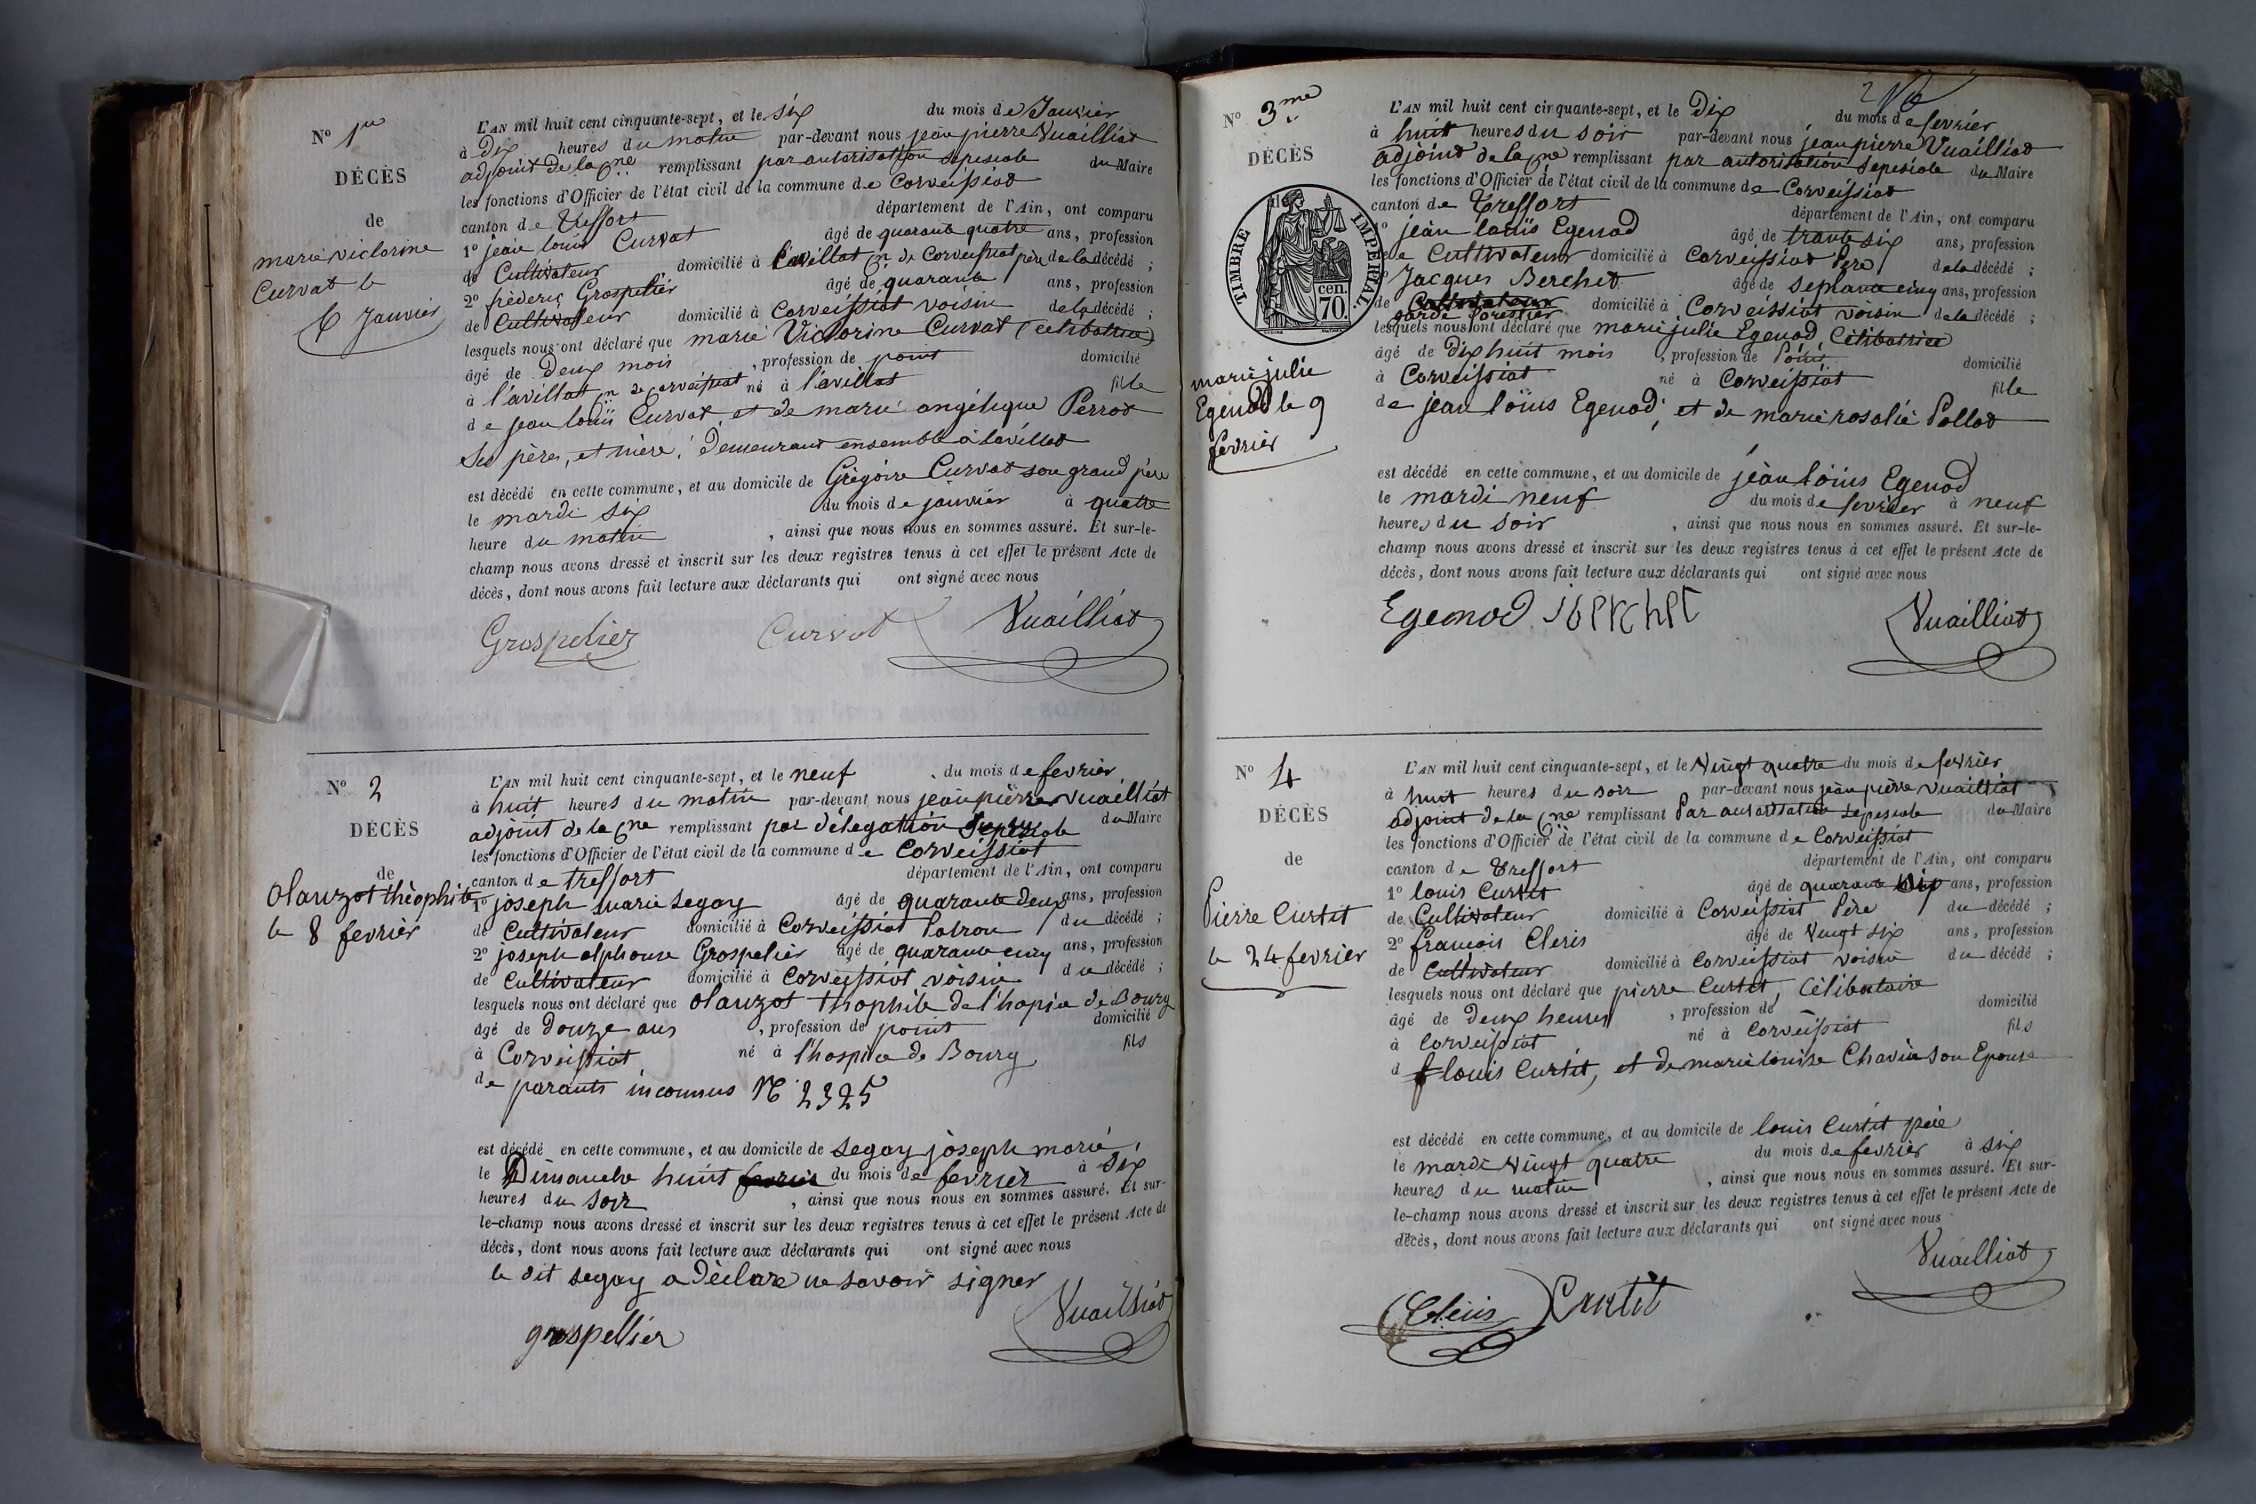 N° 1er
DÉCÈS
de
marie victorine
Curvat le
6 Janvier
L'AN mil huit cent cinquante-sept, et le six du mois de Janvier
à Dix heures du matin par-devant nous jean pierre Vuailliat
adjoint de la Cne remplissant par autorisation sepesiale du Maire
les fonctions d'Officier de l'état civil de la commune de Corveissiat
canton de Treffort département de l'Ain, ont comparu
1° jean louis Curvat âgé de quarante quatre ans, profession
de Cultivateur domicilié à lavillat cn de Corveissiat père de la décédé ;
2° fréderic Grospelier âgé de quarante ans, profession
de Cultivateur domicilié à Corveissiat voisin de la décédé ;
lesquels nous ont déclaré que marie Victorine Curvat (célibatrice)
âgé de Deux mois , profession de point domicilié
à l'avillat cn de corveissiat né à l'avillat fille
de jean louis Curvat et de marie angélique Perrod
Ses pères, et mère, Demeurant ensemble à lavillat
est décédé en cette commune, et au domicile de Grégoire Curvat son grand père
le mardi six du mois de janvier à quatre
heure du matin , ainsi que nous nous en sommes assuré. Et sur-le-
champ nous avons dressé et inscrit sur les deux registres tenus à cet effet le présent Acte de
décès, dont nous avons fait lecture aux déclarants qui ont signé avec nous
Grospelier Curvat Vuailliat
N° 2
DÉCÈS
de
olauzot théophile
le 8 fevrier
L'AN mil huit cent cinquante-sept, et le neuf du mois de fevrier
à huit heures du matin par-devant nous jean pierre Vuailliat
adjoint de la Cne remplissant par délegation Sepesiale du Maire
les fonctions d'Officier de l'état civil de la commune de Corveissiat
canton de treffort département de l'Ain, ont comparu
1° joseph marie segoy âgé de quarante deux ans, profession
de Cultivateur domicilié à Corveissiat Patron du décédé ;
2° joseph alphonse Grospelier âgé de quarante cinq ans, profession
de Cultivateur domicilié à Corveissiat voisin du décédé ;
lesquels nous ont déclaré que olauzot thophile de l'hopice de Bourg
âgé de Douze ans , profession de point domicilié
à Corveissiat né à l'hospice de Bourg fils
de parants inconnus N° 2325
est décédé en cette commune, et au domicile de segoy joseph marie,
le Dimanche huit fevrier du mois de fevrier à six
heures du soir , ainsi que nous nous en sommes assuré. Et sur-
le-champ nous avons dressé et inscrit sur les deux registres tenus à cet effet le présent Acte de
décès, dont nous avons fait lecture aux déclarants qui ont signé avec nous
le dit segoy a Déclare ne savoir signer
grospellier Vuailliat
N° 3me
DÉCÈS
TIMBRE IMPERIAL.
cen.
70.
marie julie
Egenod le 9
fevrier
L'AN mil huit cent cinquante-sept, et le Dix du mois de fevrier
à huit heures du soir par-devant nous jean pierre Vuailliat
adjoint de la Cne remplissant par autorisation sepesiale du Maire
les fonctions d'Officier de l'état civil de la commune de Corveissiat
canton de Treffort département de l'Ain, ont comparu
1° jean louis Egenod âgé de trante six ans, profession
de Cultivateur domicilié à Corveissiat Père de la décédé ;
2° Jacques Berchet âgé de septante cinq ans, profession
de Cultivateur domicilié à Corveissiat voisin de la décédé ;
garde forestier
lesquels nous ont déclaré que marie julie Egenod, Célibatrice
âgé de Dix huit mois , profession de Point domicilié
à Corveissiat né à Corveissiat fille
de jean louis Egenod, et de marie rosalie Pollet
est décédé en cette commune, et au domicile de jean louis Egenod
le mardi neuf du mois de fevrier à neuf
heures du soir , ainsi que nous nous en sommes assuré. Et sur-le-
champ nous avons dressé et inscrit sur les deux registres tenus à cet effet le présent Acte de
décès, dont nous avons fait lecture aux déclarants qui ont signé avec nous
Egenod jberchet Vuailliat
N° 4
DÉCÈS
de
Pierre Curtit
le 24 fevrier
L'AN mil huit cent cinquante-sept, et le Vingt quatre du mois de fevrier
à huit heures du soir par-devant nous jean pierre Vuailliat
adjoint de la Cne remplissant Par autorisation sepesiale du Maire
les fonctions d'Officier de l'état civil de la commune de Corveissiat
canton de Treffort département de l'Ain, ont comparu
1° louis Curtit âgé de quarante six ans, profession
de Cultivateur domicilié à Corveissiat Père du décédé ;
2° françois Cleris âgé de Vingt six ans, profession
de Cultivateur domicilié à Corveissiat voisin du décédé ;
lesquels nous ont déclaré que pierre Curtit, Célibataire
âgé de Deux heures , profession de domicilié
à Corveissiat né à Corveissiat fils
d louis Curtit, et de marie louise Chavin son Epouse
est décédé en cette commune, et au domicile de louis Curtit père
le mardi Vingt quatre du mois de fevrier à six
heures du matin , ainsi que nous nous en sommes assuré. Et sur-
le-champ nous avons dressé et inscrit sur les deux registres tenus à cet effet le présent Acte de
décès, dont nous avons fait lecture aux déclarants qui ont signé avec nous
Cleris Curtit Vuailliat